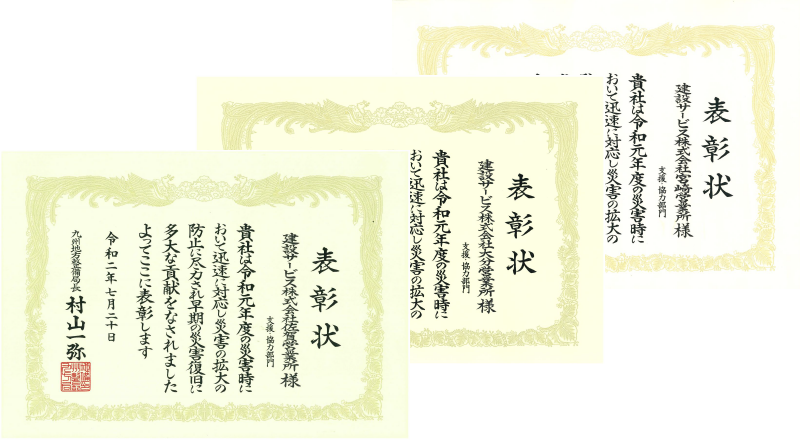 表彰状
建設サービス株式会社宮崎営業所 様
支援 協力部門
貴社は令和元年度の災害時に
おいて迅速に対応し災害の拡大の
表彰状
建設サービス株式会社大分営業所 様
支援 協力部門
貴社は令和元年度の災害時に
おいて迅速に対応し災害の拡大の
表彰状
建設サービス株式会社佐賀営業所 様
支援 協力部門
貴社は令和元年度の災害時に
おいて迅速に対応し災害の拡大の
防止に尽力され早期の災害復旧に
多大な貢献をなされました
よってここに表彰します
令和二年七月二十日
九州地方整備局長 村山一弥